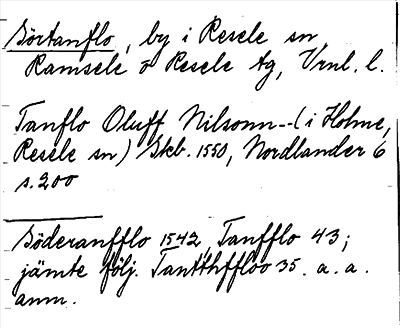 Sörtanflo, by i Resele sn
Ramsele o Resele tg, Vrnl. l.
Tanflo Oluff Nilsonn--(i Holme,
Resele sn) Skb. 1550, Nordlander 6
s. 200
Söderanfflo 1542, Tanfflo 43;
jämte följ. Tantthffloo 35. a. a.
anm.